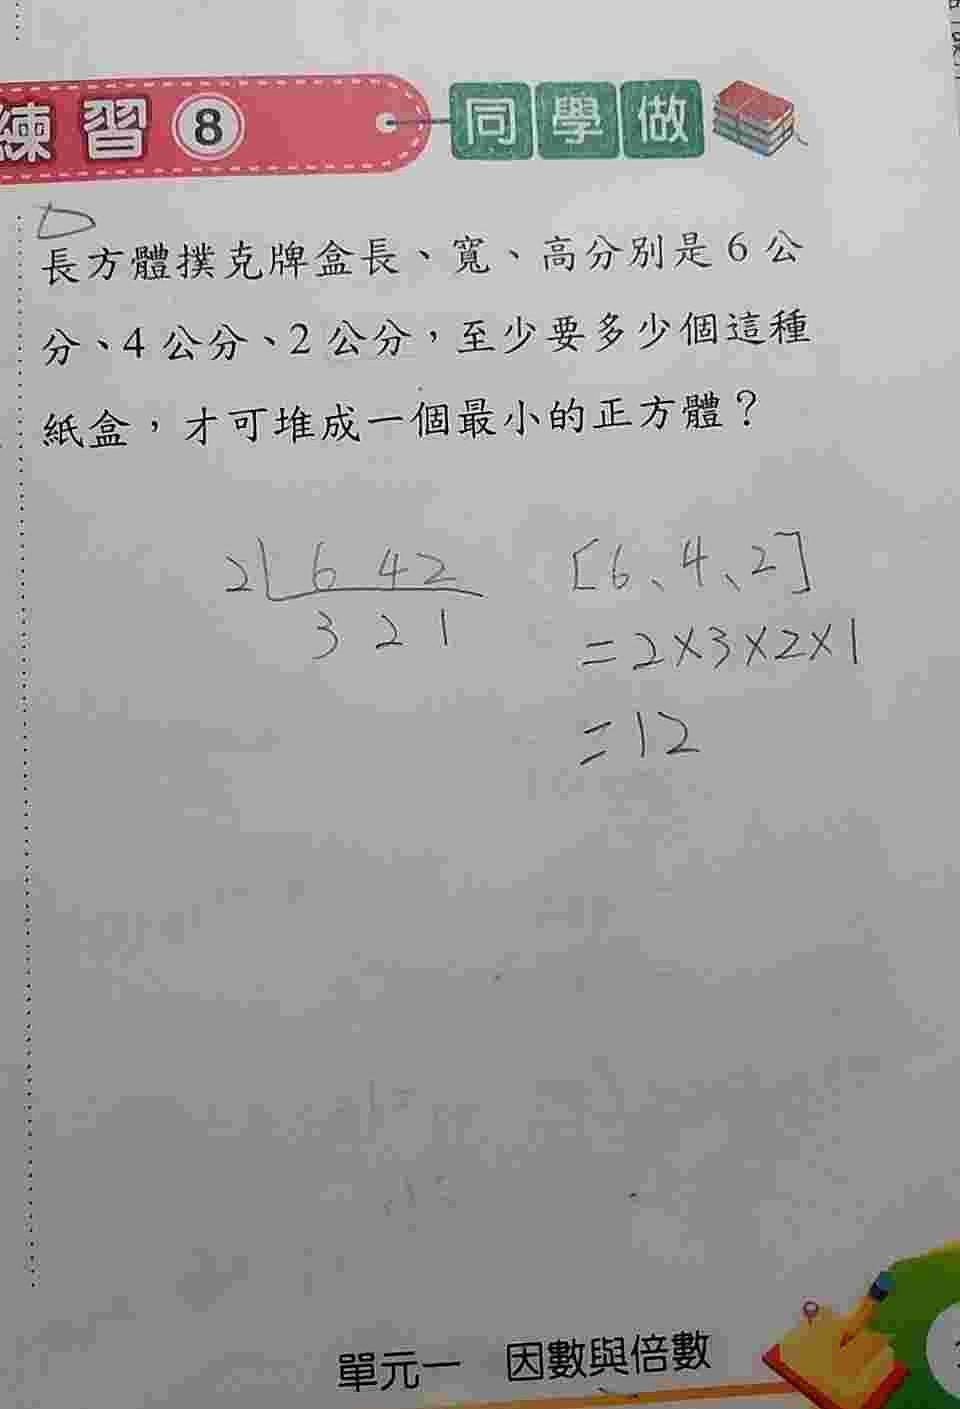 練習8 同學做
長方體撲克牌盒長、寬、高分別是6公
分、4公分、2公分，至少要多少個這種
紙盒，才可堆成一個最小的正方體？
2 6 4 2 [6、4、2]
3 2 1 =2×3×2×1
=12
單元一 因數與倍數